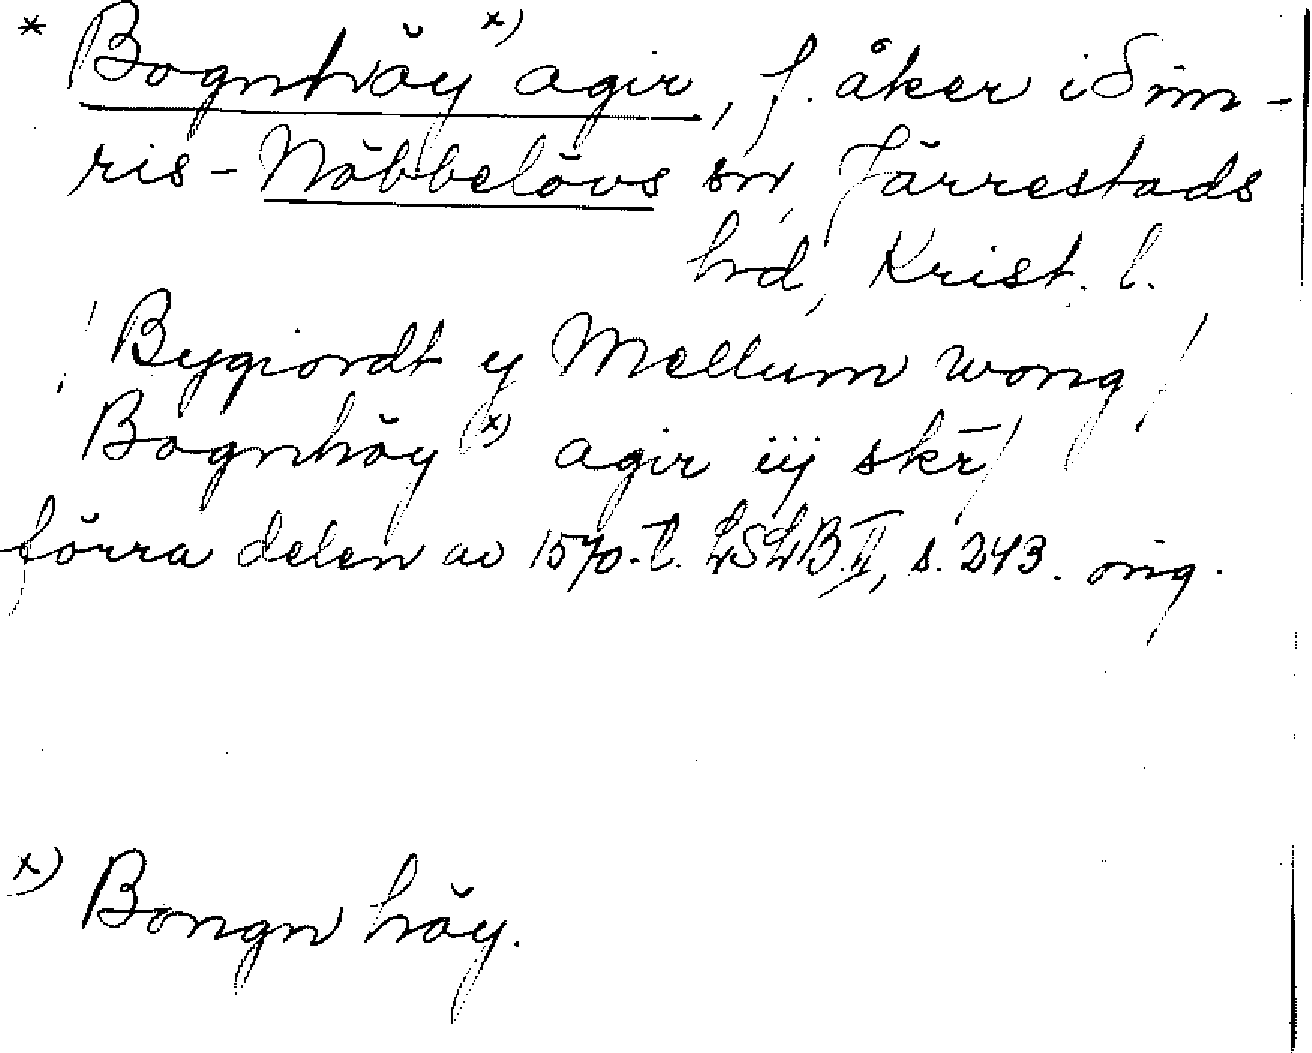 * Bognhöy x) agir, f. åker i Sim-
ris-Nöbbelövs sn, Järrestads
hd, Krist. l.
/ Bygiordt y Mellum wong /
Bognhöy (x) agir iij skr̄ /
förra delen av 1570-t. LSLB.II, s. 243. orig.
x) Bongn höy.